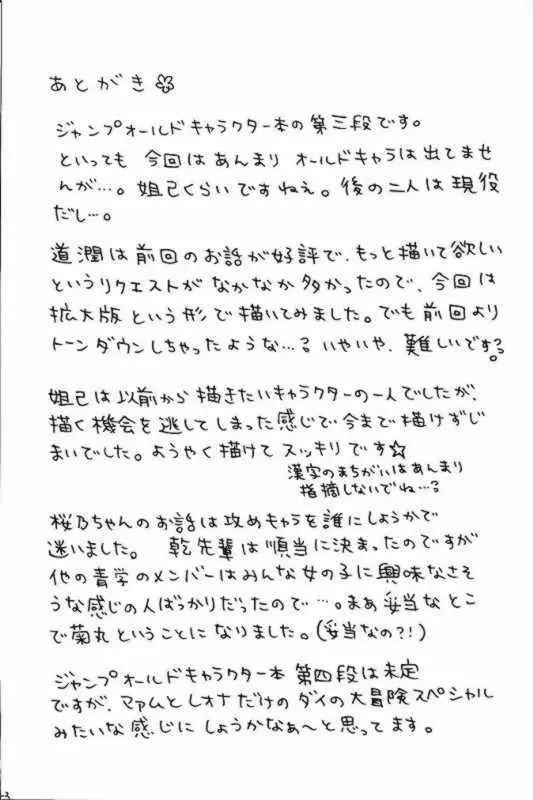 あとがき
ジャンプオールドキャラクター本の第三段です。
といっても 今回はあんまり オールドキャラは出てませ
んが…。妲己くらいですねえ。後の二人は現役
だし…。
道潤は前回のお話が好評で、もっと描いて欲しい
というリクエストが なかなか多かったので、今回は
拡大版という形で描いてみました。でも前回より
トーンダウンしちゃったような…？いやいや、難しいです？。
妲己は以前から描きたいキャラクターの一人でしたが、
描く機会を逃してしまった感じで今まで描けずじ
まいでした。ようやく描けて スッキリです☆
漢字のまちがいはあんまり
指摘しないでね…？
桜乃ちゃんのお話は攻めキャラを誰にしようかで
迷いました。 乾先輩は順当に決まったのですが
他の青学のメンバーはみんな女の子に興味なさそ
うな感じの人ばっかりだったので…。まあ妥当なとこ
で菊丸ということになりました。(妥当なの？！)
ジャンプオールドキャラクター本 第四段は未定
ですが、マァムとレオナだけのダイの大冒険スペシャル
みたいな感じにしようかなぁ〜と思ってます。